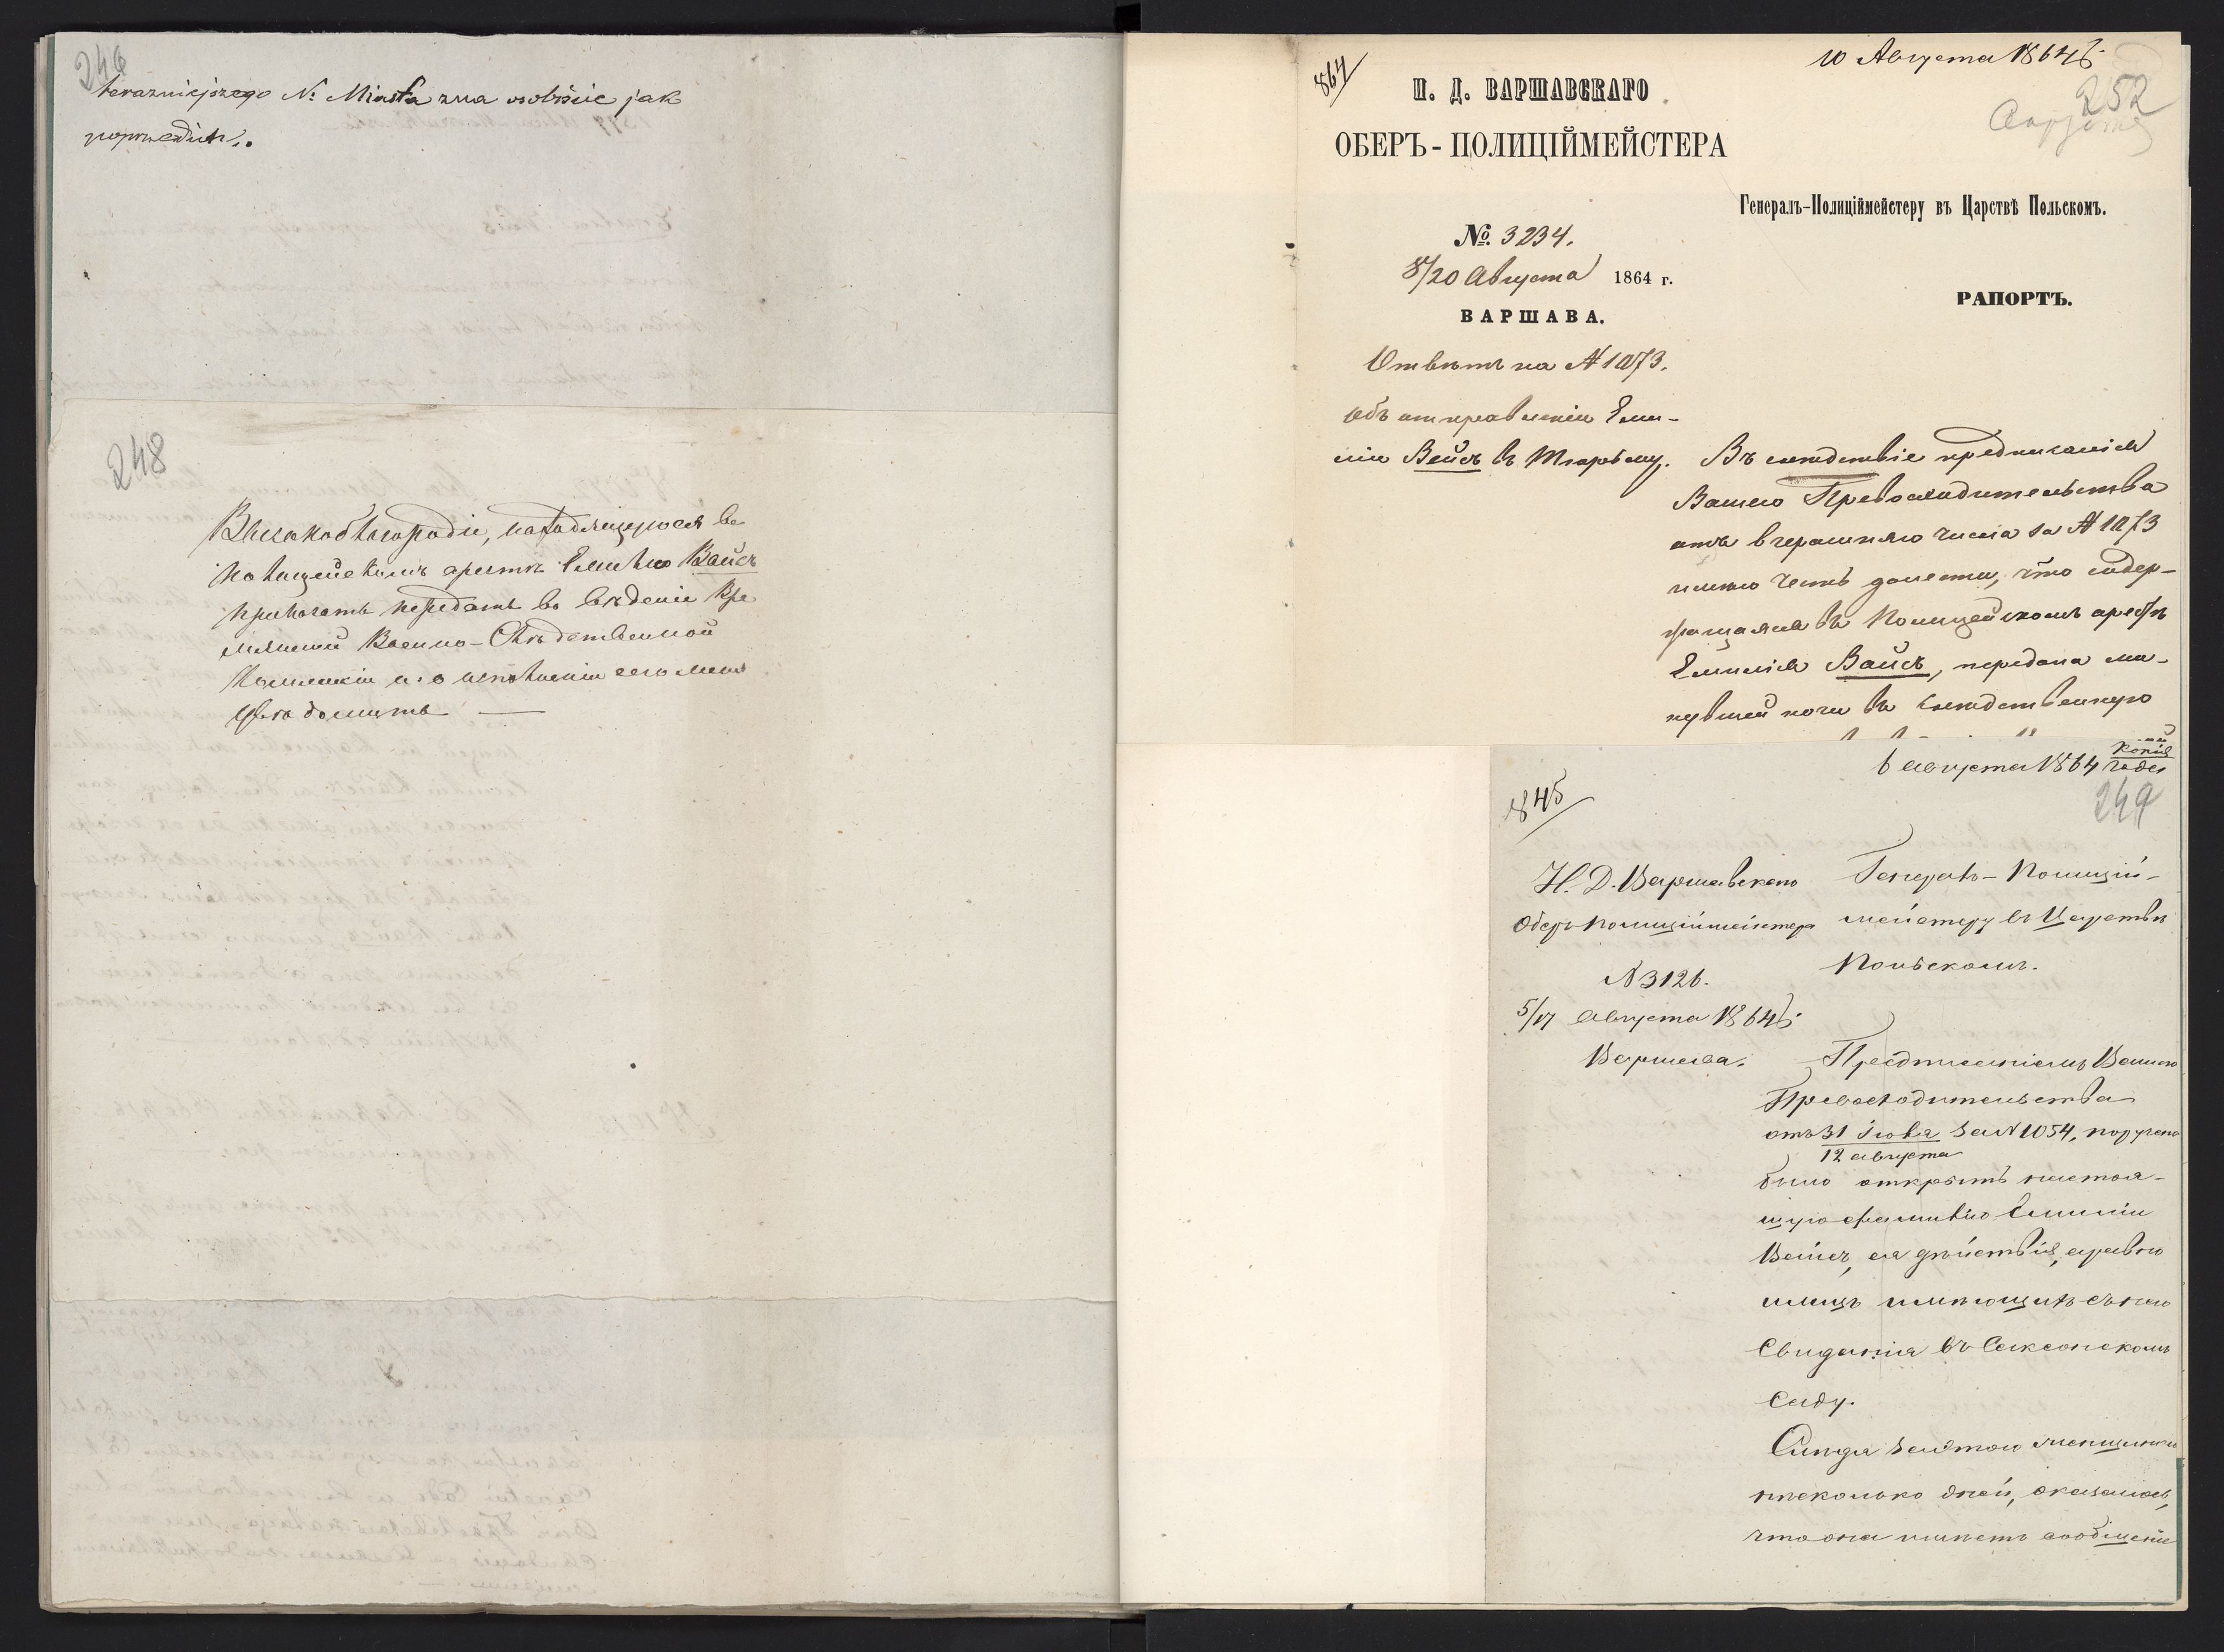 246
terazniejszego №: Miasta zna osobiście jak
poprzednich.
248
Высокоблагородіе, находящуюся въ
полицейскомъ арестѣ Емилію Вайсъ
приказать передать въ вѣденіе Вре
менной Военно-Слѣдственной
Коммисіи и о исполненіи сего меня
увѣдомить —
867
10 Августа 1864 г.
252
И. Д. ВАРШАВСКАГО
ОБЕРЪ-ПОЛИЦІЙМЕЙСТЕРА
Генералъ-Полиціймейстеру въ Царствѣ Польскомъ.
№. 3234.
8/20 Августа 1864 г.
РАПОРТЪ.
ВАРШАВА.
Отвѣтъ на № 1073.
Объ отправленіи Еми-
ліи Вейсъ въ тюрьму.
Въ слѣдствіе предписанія
Вашего Превосходительства
отъ вчерашняго числа за № 1073
имѣю честь донести, что содер-
жащаяся въ Полицейскомъ арестѣ
Емилія Вайсъ, передана ми-
нувшей ночи въ Слѣдственную
Копія
6 августа 1864 года
845
249
И. Д. Варшавскаго
Оберъ Полиціймейстера
№ 3126.
5/17 Августа 1864 г.
Варшава.
Генералъ-Полицій-
мейстеру въ Царствѣ
Польскомъ.
Предписаніемъ Вашего
Превосходительства
отъ 31 Іюля за № 1054, поручено
12 августа
было открыть настоя-
щую фамилію Емиліи
Вайсъ, ея дѣйствія, а равно
лицъ имѣющихъ съ нею
Свиданія въ Саксонскомъ
Саду.
Слѣдя за этою женщиною
нѣсколько дней, оказалось,
что она имѣетъ сообщеніе